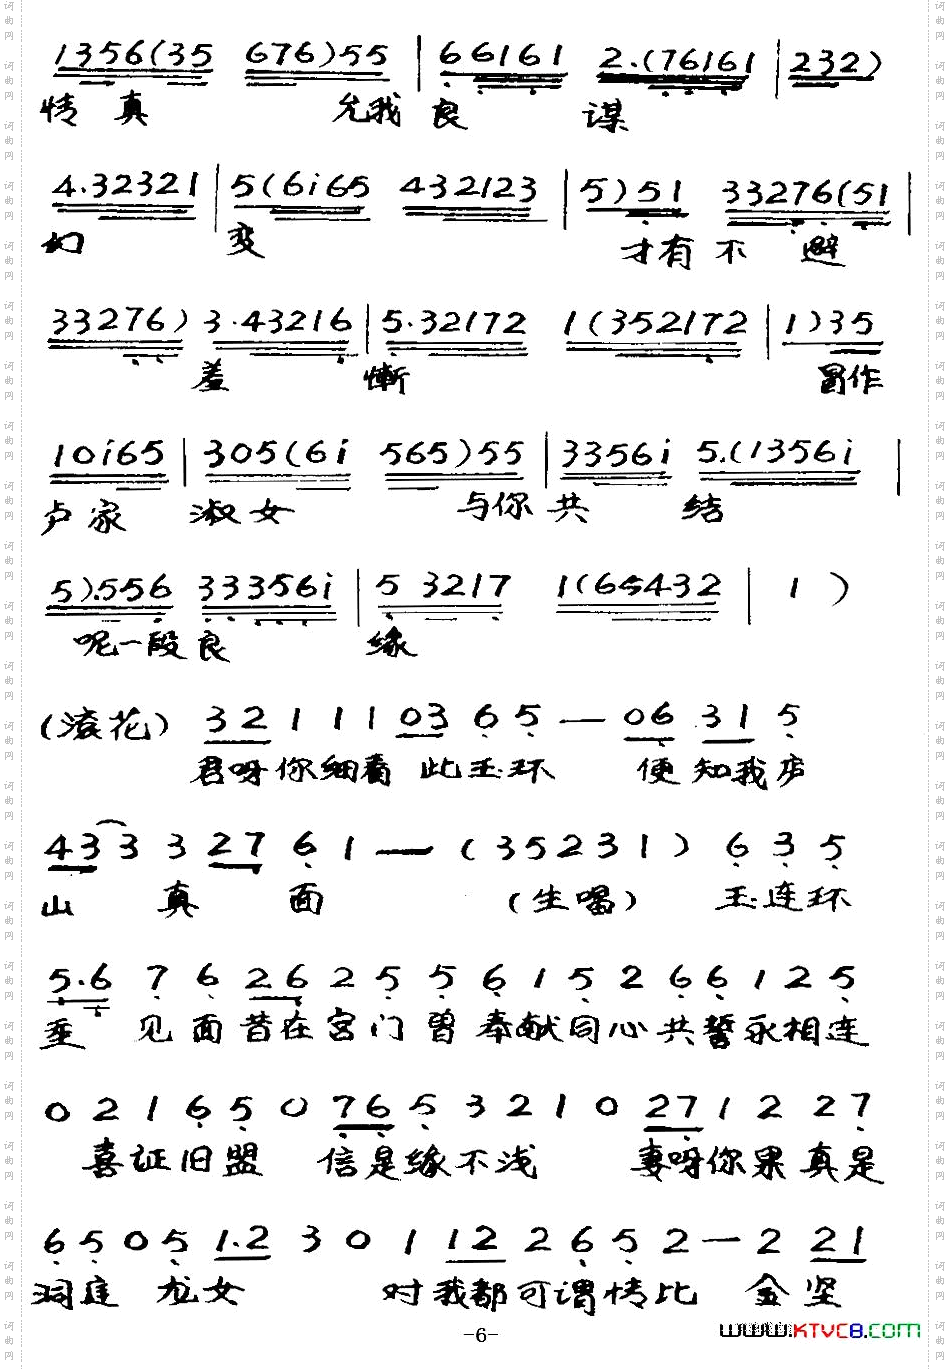 1356(35 676)55 | 66161 2.(76161 | 232)
情真 允我良 谋
4.32321 | 5(6i65 432123 | 5)51 33276(51 |
幻 变 才有不 避
33276) 3.43216 | 5.32172 1(352172 | 1)35
羞 惭 冒作
10i65 | 305(6i 565)55 | 3356i 5.(1356i |
卢家 淑女 与你共 结
5).556 33356i | 5 3217 1(65432 | 1 )
呢一段良 缘
(滚花) 3 2 1 1 1 03 6 5 — 06 31 5
君呀你细看 此玉环 便知我庐
43 3 3 27 6 1 — (35231) 6 3 5
山 真 面 (生唱) 玉连环
5.6 7 6 26 2 5 5 6 1 5 2 6 6 1 2 5
重 见面昔在宫门曾奉献同心共誓永相连
0 2 1 6 5 0 76 5 3 2 1 0 27 1 2 2 7
喜证旧盟 信是缘不浅 妻呀你果真是
6 5 0 5 1.2 3 0 1 12 2 6 5 2 — 2 21
洞庭 龙女 对我都可谓情比 金坚
-6-
www.KTVC8.com